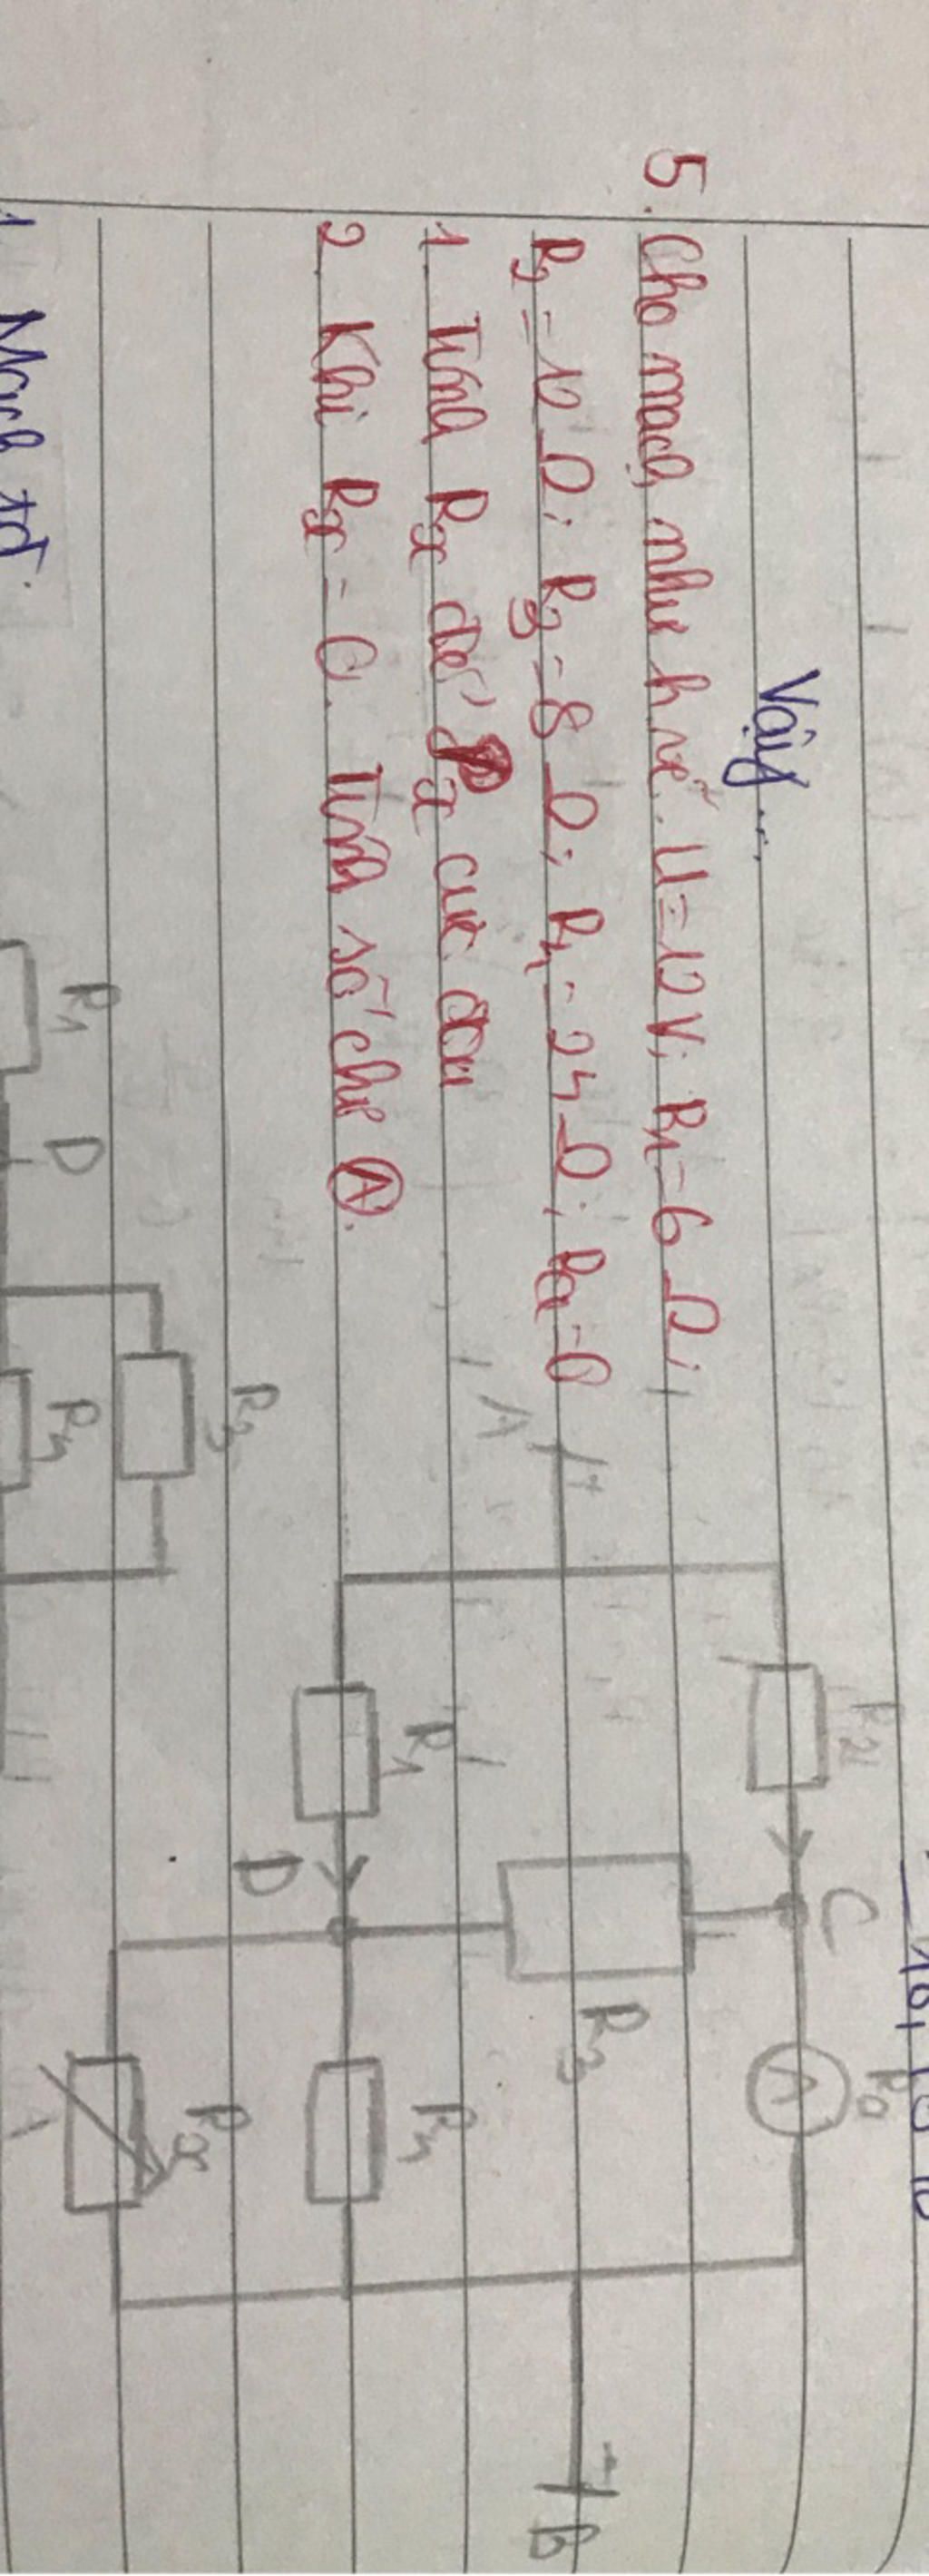 Vậy...
5. Cho mạch như h.vẽ. U=12V; R1=6 Ω;
R2=12 Ω; R3=8 Ω; R4=24 Ω; Ra=0
1. Tính Rx để Px cực đại
2. Khi Rx=0. Tính số chỉ Ⓐ.
R2
C
Ra
A
A
+
R3
-
B
R1
D
R4
Rx
R3
R1
D
R4
1. Mạch tđ: